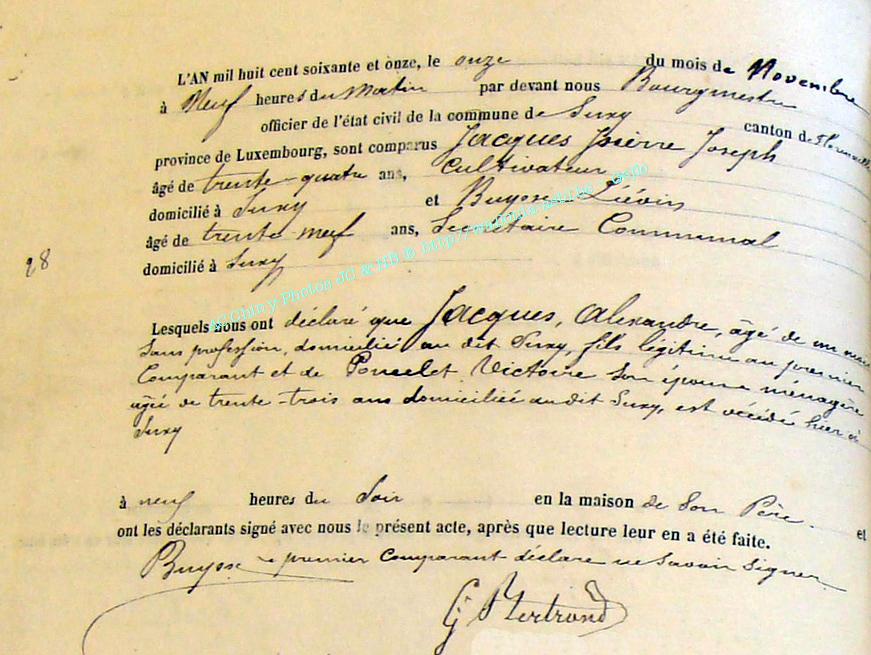 L'AN mil huit cent soixante et onze, le onze du mois de Novembre
à Neuf heures du Matin par devant nous Bourgmestre
officier de l'état civil de la commune de Suxy canton de Florenville
province de Luxembourg, sont comparus Jacques Pierre Joseph
âgé de trente-quatre ans, Cultivateur
domicilié à Suxy et Buysse Liévin
âgé de trente neuf ans, Secrétaire Communal
domicilié à Suxy
28
Lesquels nous ont déclaré que Jacques, Alexandre, âgé de un mois
Sans profession, domicilié au dit Suxy, fils légitime au premier
Comparant et de Poncelet Victoire Son épouse ménagère
âgée de trente-trois ans domiciliée au dit Suxy, est décédé hier à
Suxy
à neuf heures du Soir en la maison de Son Père et
ont les déclarants signé avec nous le présent acte, après que lecture leur en a été faite.
Buysse premier Comparant déclare ne Savoir Signer
G Bertrand
AC Chiny Photos JG & NB ©